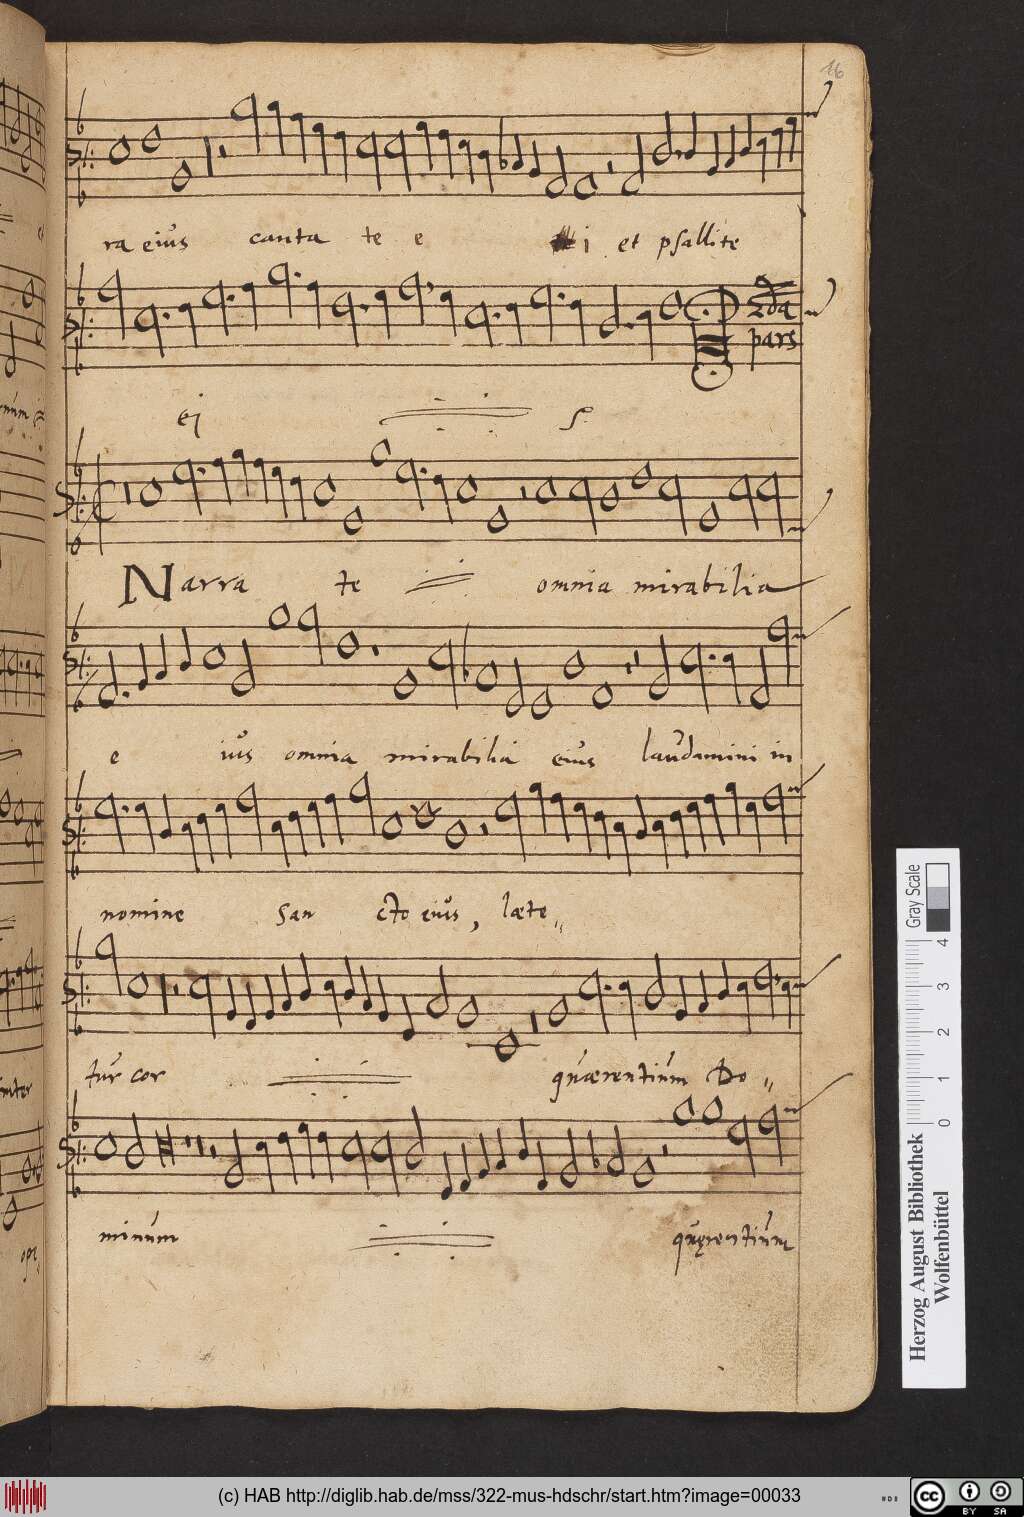 16
ra eius canta te e i et psallite
2da
pars
ei S
Narra te omnia mirabilia
e ius omnia mirabilia eius laudamini in
nomine san cto eius, læte„
tur cor quærentium Do„
minum quęrentium
Gray Scale
0 1 2 3 4
Herzog August Bibliothek
Wolfenbüttel
(c) HAB http://diglib.hab.de/mss/322-mus-hdschr/start.htm?image=00033
cc BY SA